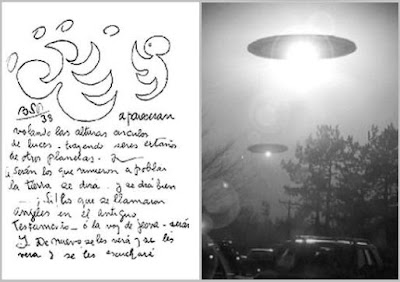 BSP
38
apareceran
volando las alturas circulos
de luces - trayendo seres extraños
de otros planetas -
¿Serán los que vinieron a poblar
la tierra se dira . y se dirá bien
¡Si! los que se llamaron
angeles en el antiguo
Testamento - ó la voz de Jeova -
De nuevo se les verá y se les
vera y se les escuchará